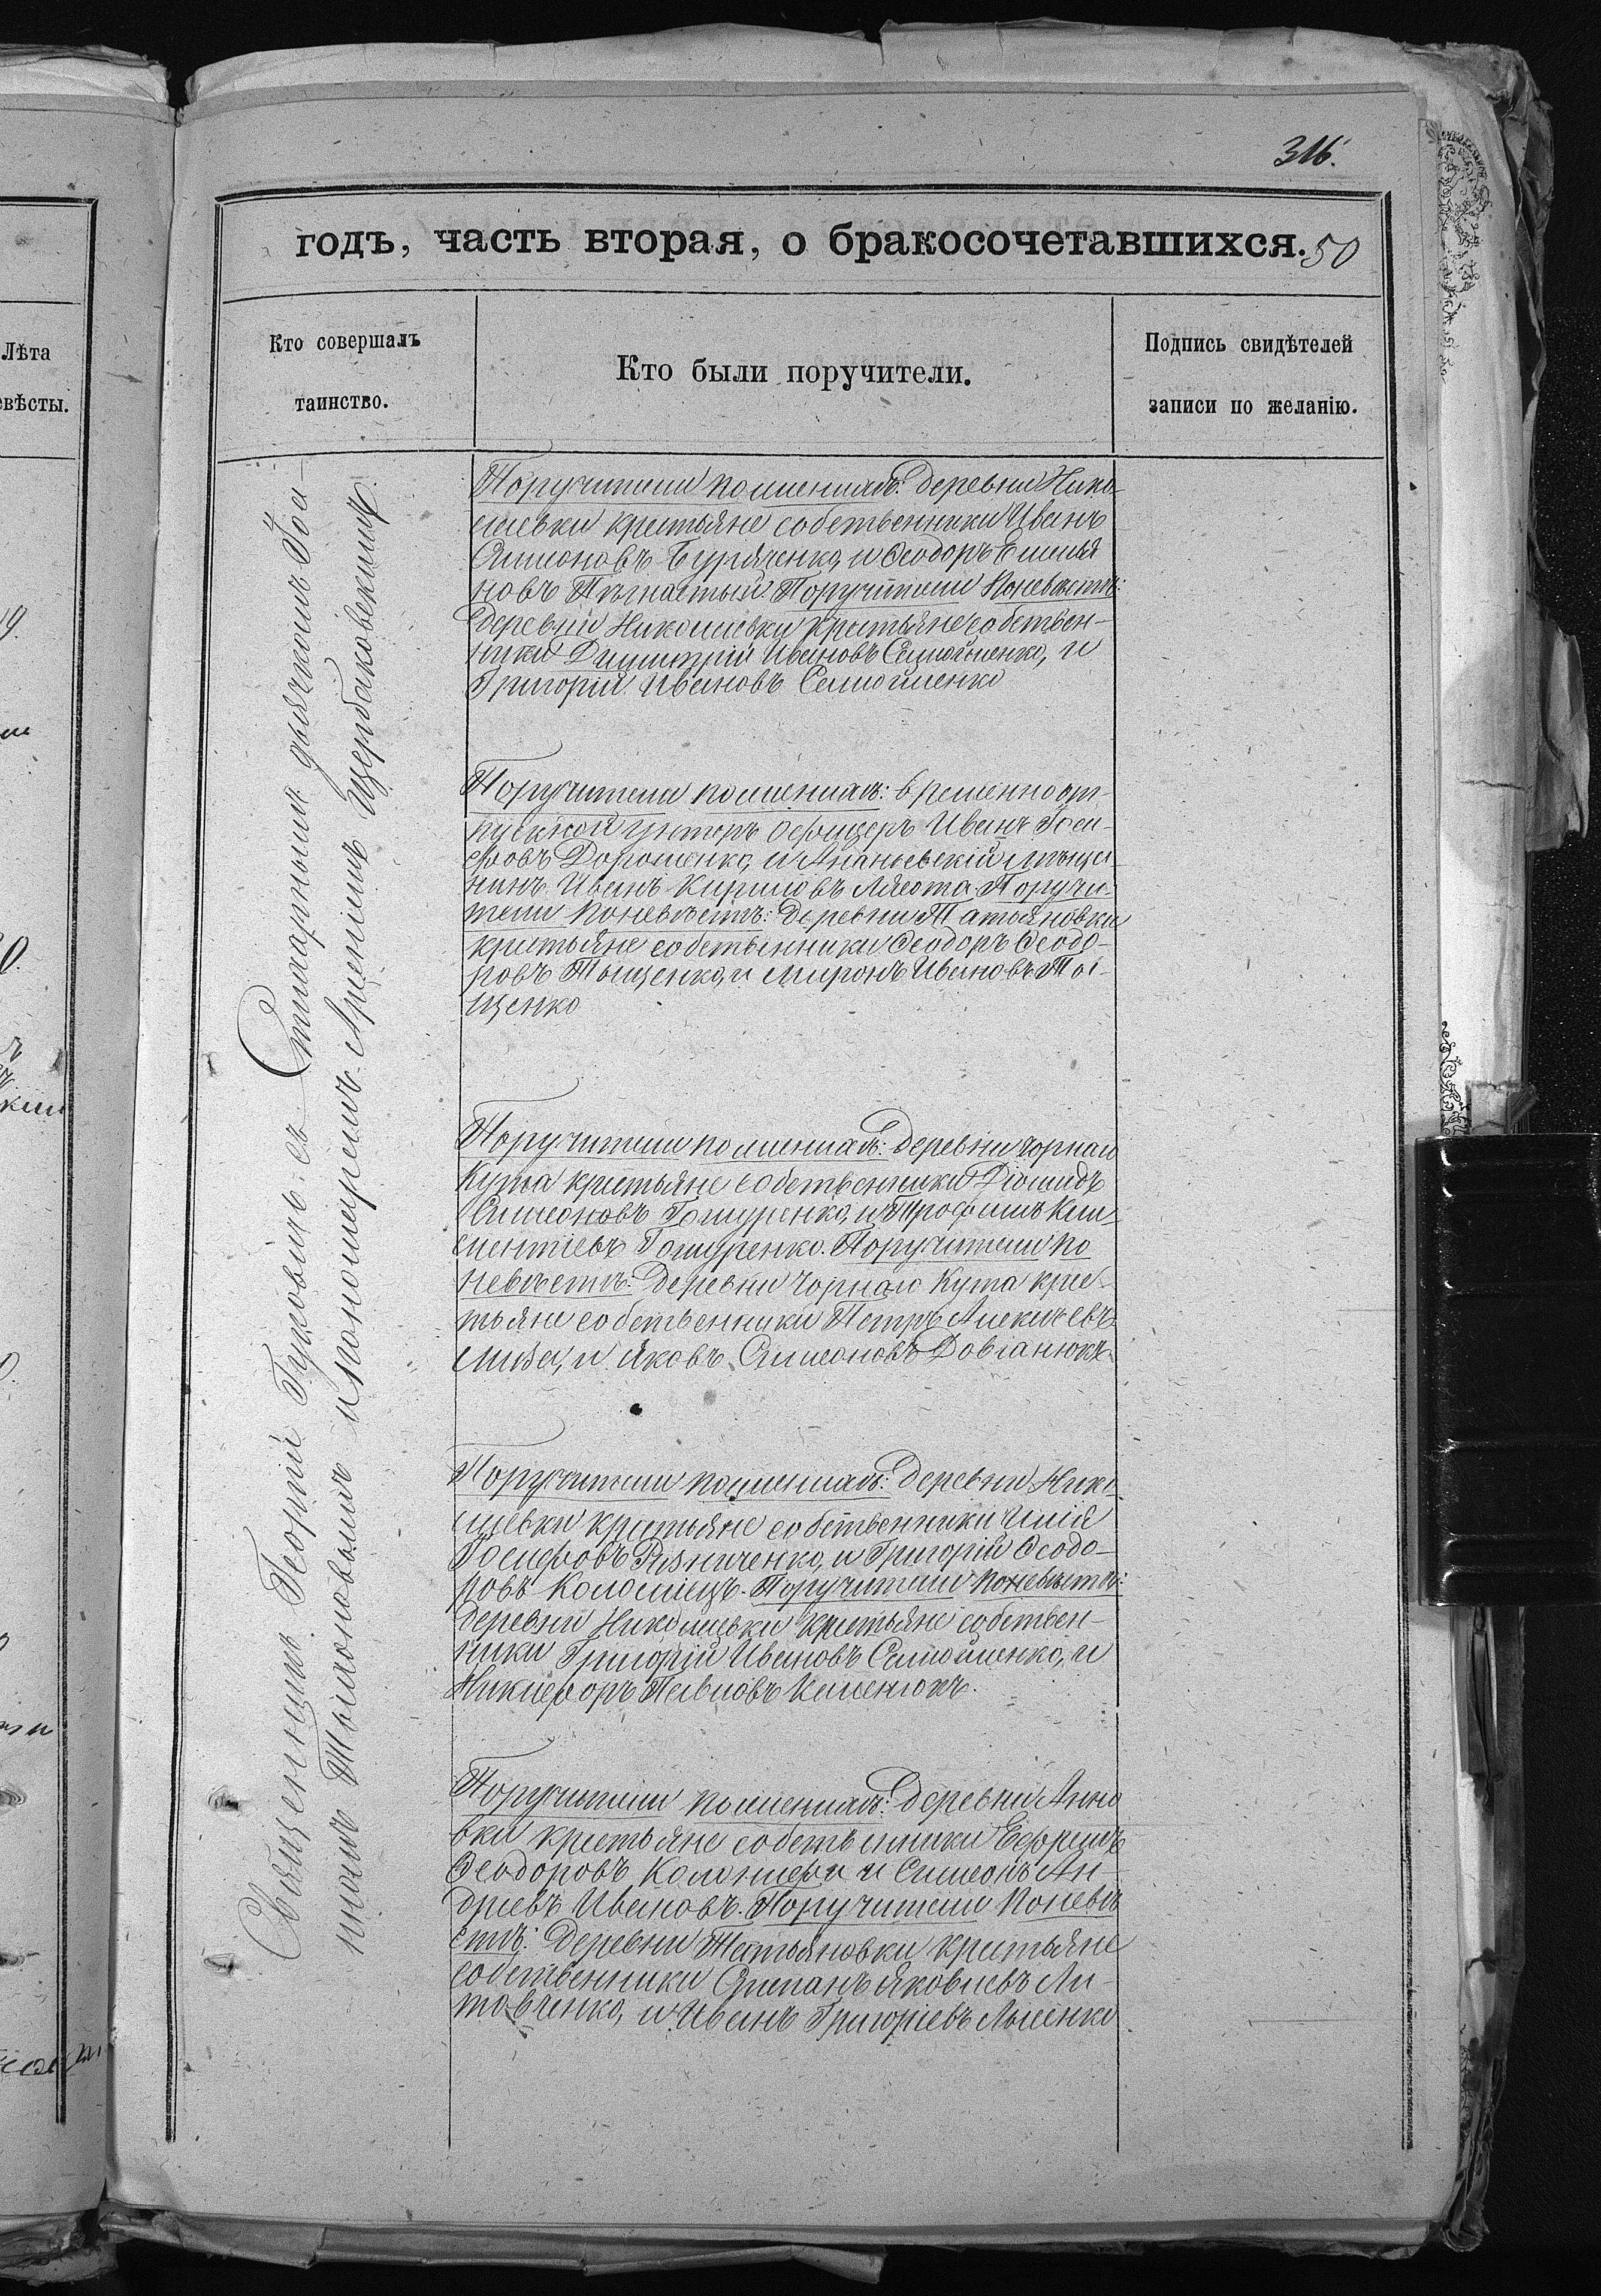 316.
годъ, часть вторая, о бракосочетавшихся. 50
Лѣта
евѣсты.
Кто совершалъ
таинство.
Кто были поручители.
Подпись свидѣтелей
записи по желанію.
Священникъ Георгій Гуковичъ съ Стихарнымъ дьячкомъ Іоа-
нномъ и пономаремъ Арсеніемъ Щербаковскимъ.
Поручители по женихѣ: деревни Нико-
лаевки крестьяне собственники Иванъ
Симеоновъ Буряченко, и Ѳеодоръ Емелья
новъ Пѣгнастый Поручители по невѣстѣ:
деревни Николаевки крестьяне собствен-
ники Димитрій Ивановъ Самойленко, и
Григорій Ивановъ Самойленко
Поручители по женихѣ: временно от-
пускной унторъ офицеръ Иванъ Іоси-
фовъ Дорошенко, и Ананьевскій мѣща-
нинъ Иванъ Кириловъ Поручи-
тели по невѣстѣ: деревни Татьяновки
крестьяне собственники Ѳеодоръ Ѳеодо-
ровъ Тыщенко, и Миронъ Ивановъ Ты-
щенко
Поручители по женихѣ: деревни чорнаго
Кута крестьяне собственники Діомидъ
Симеоновъ Гончуренко, и Трофимъ Кли-
ментіевъ Гончуренко. Поручители по
невѣстѣ: деревни чорнаго Кута крес-
тьяне собственники Петръ Алексѣевъ
и Яковъ Симеоновъ Довганюкъ
Поручители по женихѣ: деревни Нико-
лаевки крестьяне собственники Илія
Іосифовъ Ризниченко, и Григорій Ѳеодо-
ровъ Коломіецъ. Поручители по невѣстѣ:
деревни Николаевки крестьяне собствен-
ники Григорій Ивановъ Самойленко, и
Никифоръ Павловъ Каменюкъ.
Поручители по женихѣ: деревни Анно
вки крестьяне собственники Ефремъ
Ѳеодоровъ и Симеонъ Ан
дріевъ Ивановъ. Поручители по невѣ
стѣ: деревни Татьяновки крестьяне
собственники Степанъ Яковлевъ Ли-
товченко, и Иванъ Григоріевъ Лысенко